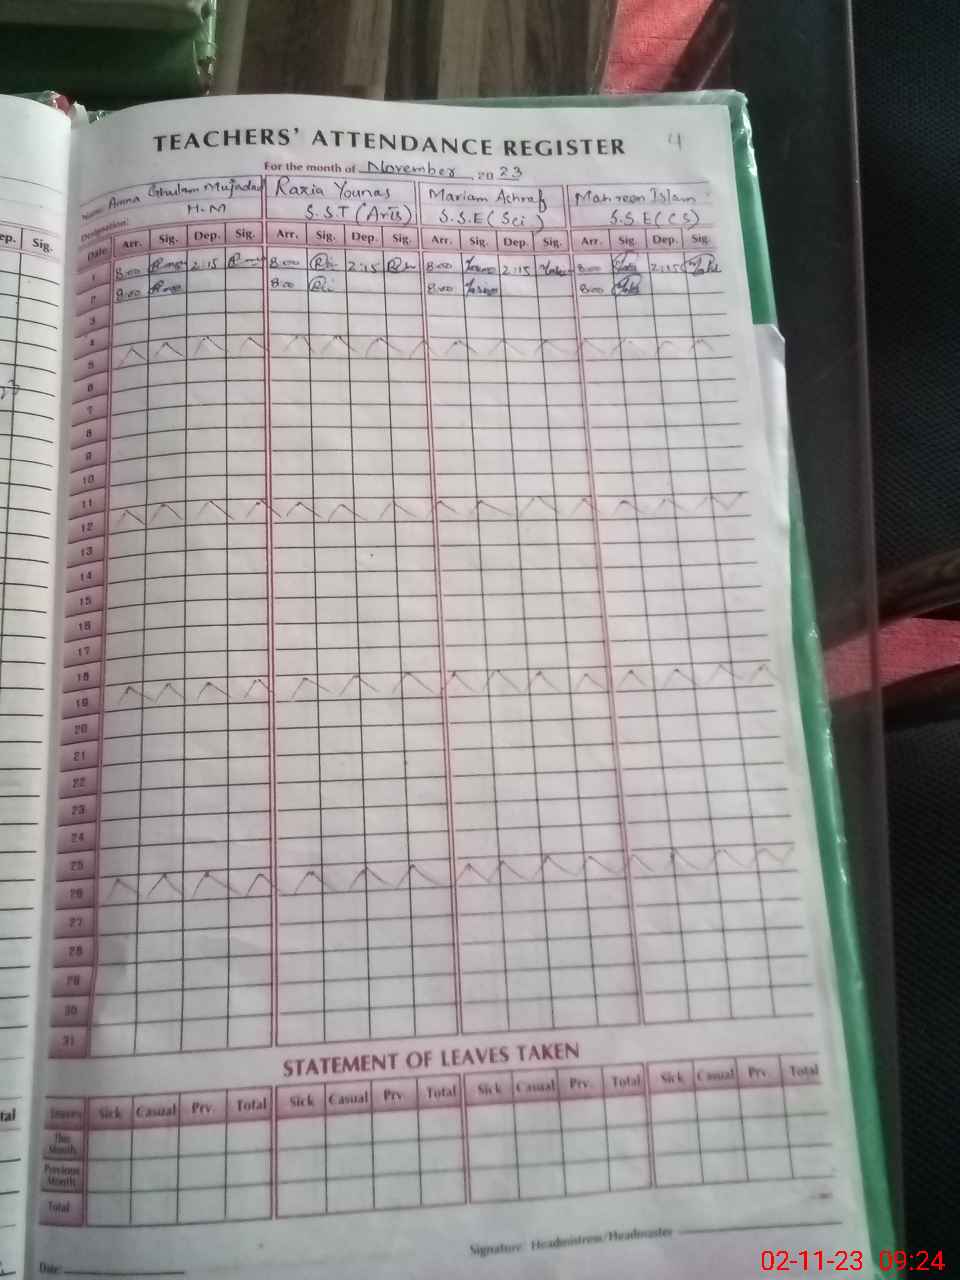 TEACHERS' ATTENDANCE REGISTER 4
For the month of November 2023
Name: Amna Ghulam Razia Younas Mariam Ashraf Mahreen Islam
Designation: H.M S.S.T (Arts) S.S.E (Sci) S.S.E (CS)
ep. Sig. Date Arr. Sig. Dep. Sig. Arr. Sig. Dep. Sig. Arr. Sig. Dep. Sig. Arr. Sig. Dep. Sig.
1 8:00 2:15 8:00 2:15 8:00 2:15 8:00 2:15
2 8:00 8:00 8:00 8:00
3
4
5
6
7
8
9
10
11
12
13
14
15
16
17
18
19
20
21
22
23
24
25
26
27
28
29
30
31
STATEMENT OF LEAVES TAKEN
tal Leaves Sick Casual Prv. Total Sick Casual Prv. Total Sick Casual Prv. Total Sick Casual Prv. Total
This Month
Previous Month
Total
Signature: Headmistress/Headmaster
Date:
02-11-23 09:24